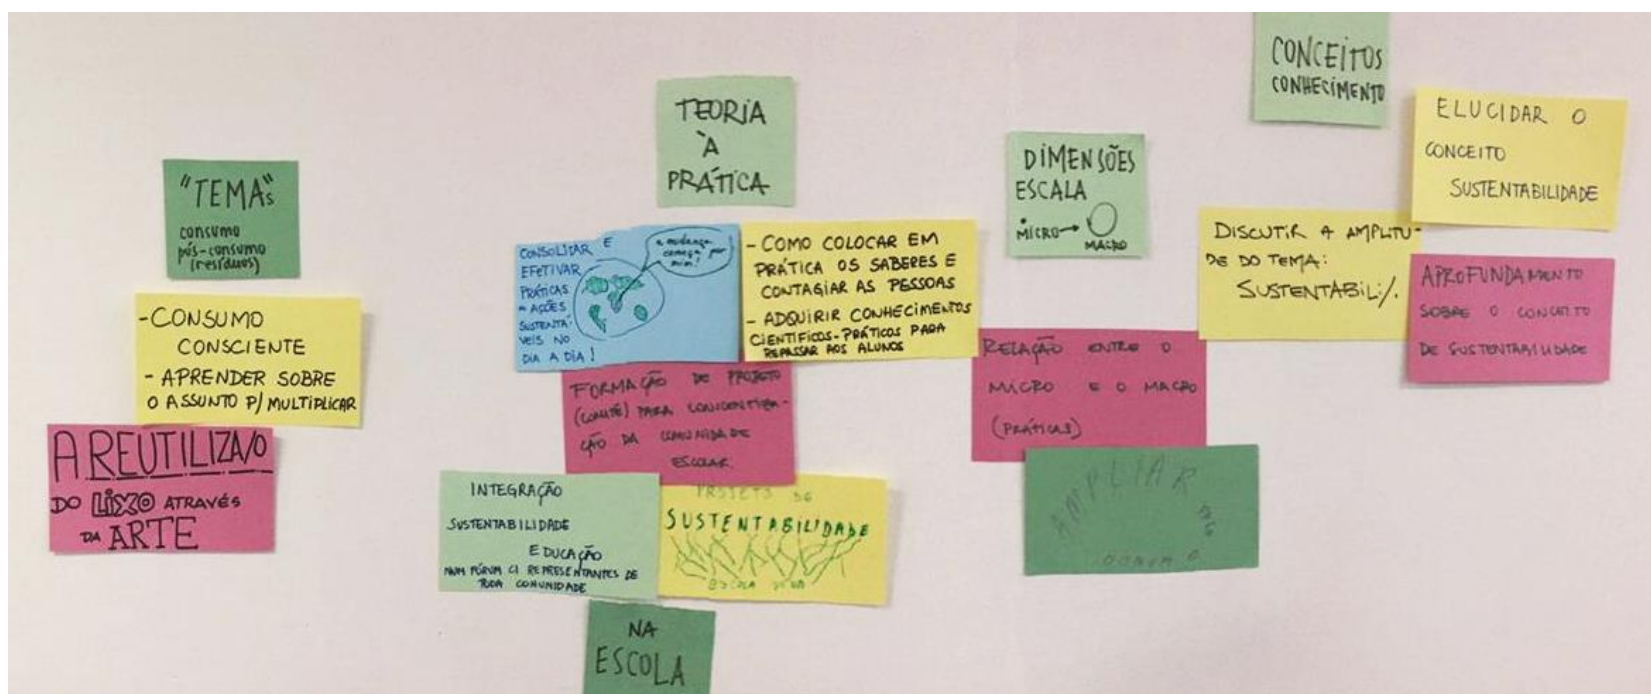 "TEMA"s
consumo
pós-consumo
(resíduos)
- CONSUMO
CONSCIENTE
- APRENDER SOBRE
O ASSUNTO P/ MULTIPLICAR
A REUTILIZA/O
DO LIXO ATRAVÉS
DA ARTE
TEORIA
À
PRÁTICA
CONSOLIDAR E
EFETIVAR
PRÁTICAS
AÇÕES
SUSTENTÁ-
VEIS NO
DIA A DIA!
a mudança
começa por
mim!
- COMO COLOCAR EM
PRÁTICA OS SABERES E
CONTAGIAR AS PESSOAS
- ADQUIRIR CONHECIMENTOS
CIENTÍFICOS-PRÁTICOS PARA
REPASSAR AOS ALUNOS
FORMAÇÃO DE PROJETO
(COMITÊ) PARA CONCIENTIZA-
ÇÃO DA COMUNIDADE
ESCOLAR.
INTEGRAÇÃO
SUSTENTABILIDADE
EDUCAÇÃO
NUM FÓRUM C/ REPRESENTANTES DE
TODA COMUNIDADE
PROJETO DE
SUSTENTABILIDADE
ESCOLA
NA
ESCOLA
DIMENSÕES
ESCALA
MICRO → MACRO
RELAÇÃO ENTRE O
MICRO E O MACRO
(PRÁTICAS)
AMPLIAR
CONCEITOS
CONHECIMENTO
ELUCIDAR O
CONCEITO
SUSTENTABILIDADE
DISCUTIR A AMPLITU-
DE DO TEMA:
SUSTENTABILI/.
APROFUNDAMENTO
SOBRE O CONCEITO
DE SUSTENTABILIDADE